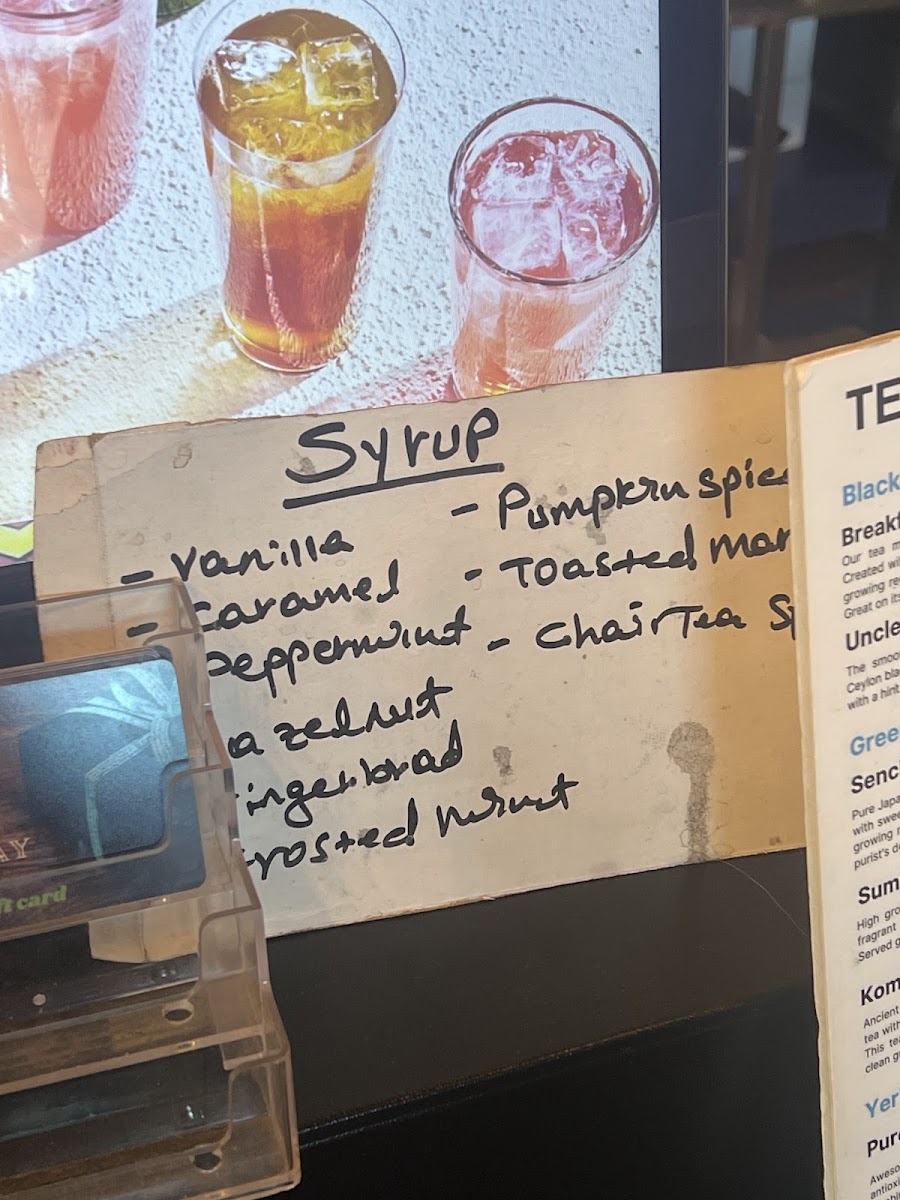 Syrup
- Vanilla
- Caramel
Peppermint
azelnut
ingerbrad
rosted mint
- Pumpkin spice
- Toasted Mar
- Chair Tea Sp
AY
ft card
TE
Black
Breakf
Our tea m
Created wi
growing re
Great on its
Uncle
The smoo
Ceylon bla
with a hint
Gree
Senc
Pure Japa
with swee
growing r
purist's d
Sum
High gro
fragrant
Served g
Kom
Ancient
tea with
This tea
clean g
Yer
Pure
Aweso
antioxi